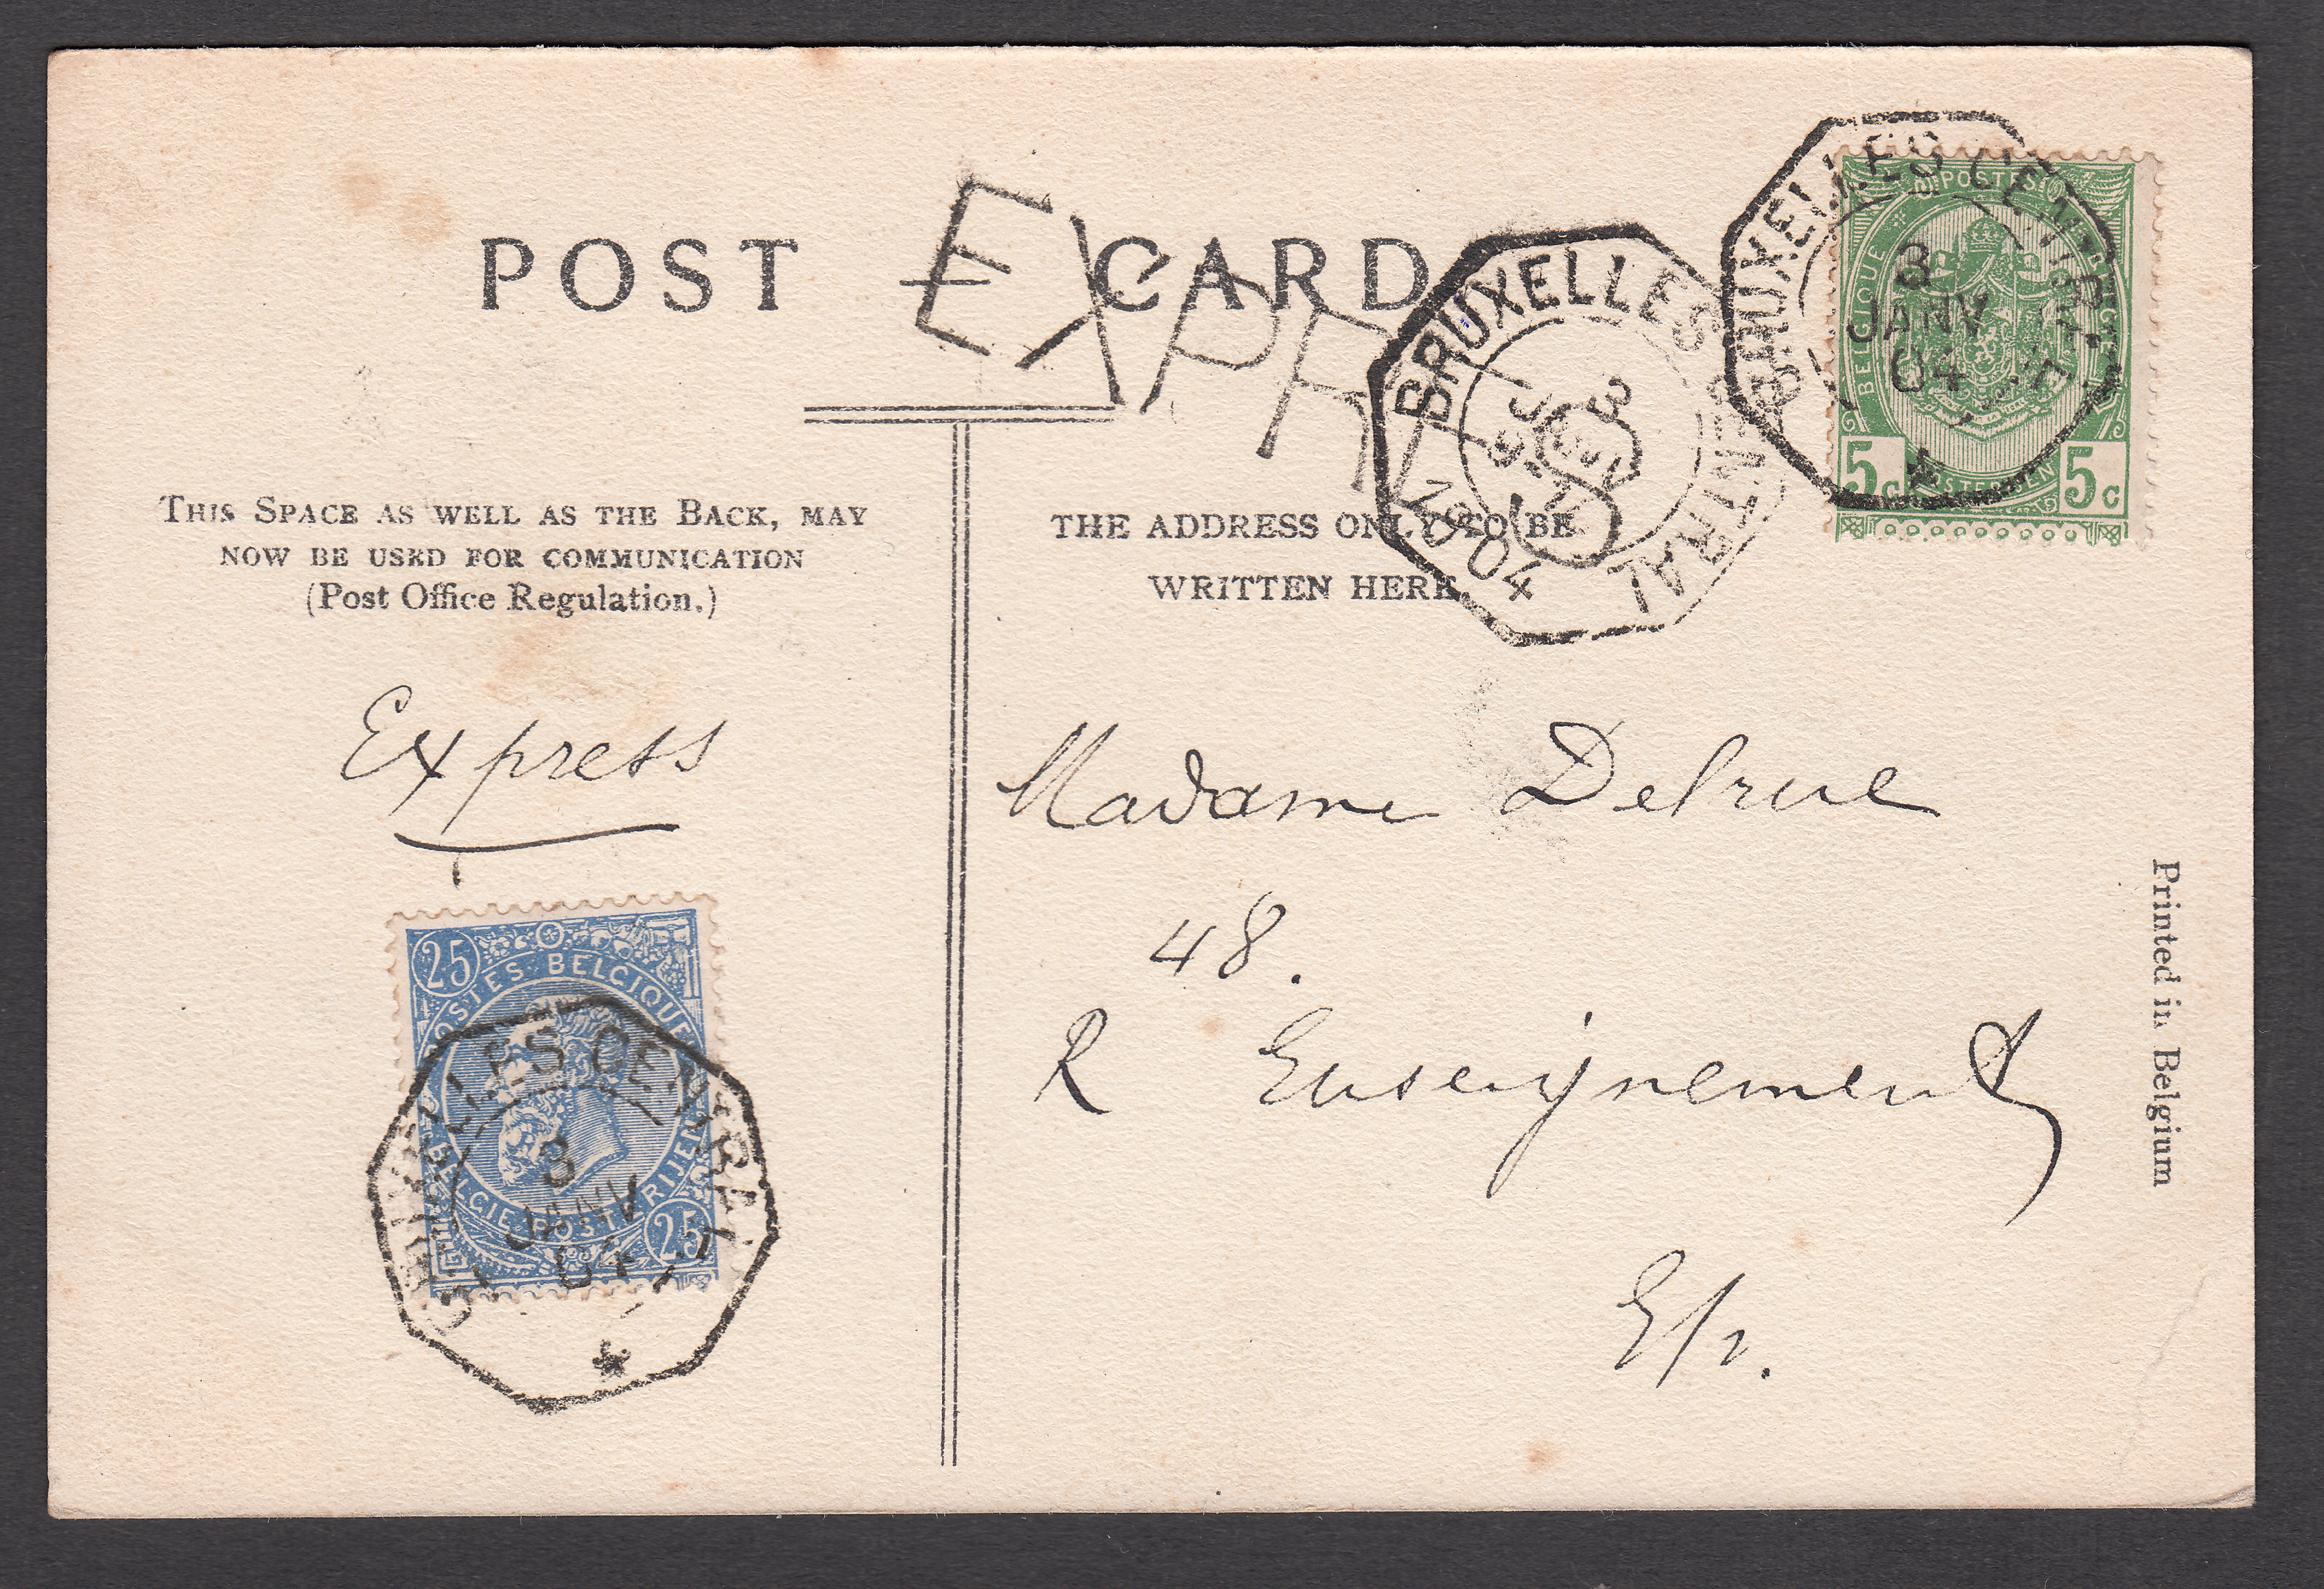 POST CARD
EXPR
BRUXELLES CENTRAL
3
JANV
1904
BRUXELLES CENTRAL
3
JANV
04
POSTES
BELGIQUE
BELGIË
POSTERIJEN
5c 5c
THIS SPACE AS WELL AS THE BACK, MAY
NOW BE USED FOR COMMUNICATION
(Post Office Regulation.)
THE ADDRESS ONLY TO BE
WRITTEN HERE.
Express
Madame Delrue
48.
R Enseignement
E/v.
Printed in Belgium
25
POSTES BELGIQUE
BELGIE POSTERIJEN
25
BRUXELLES CENTRAL
3
JANV
04